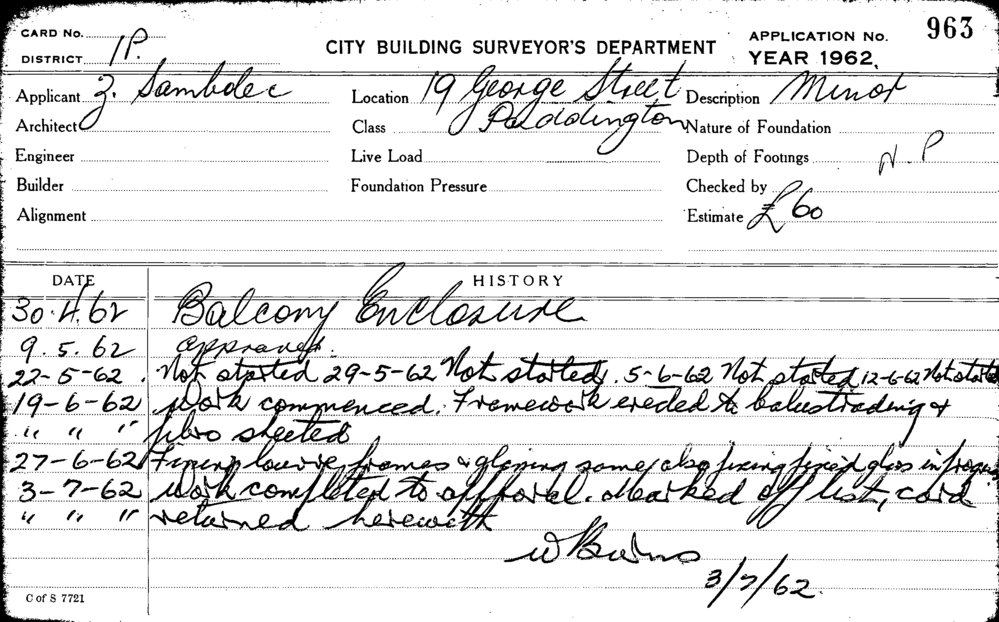 CARD No.
DISTRICT 1P.
CITY BUILDING SURVEYOR'S DEPARTMENT
APPLICATION No. 963
YEAR 1962.
Applicant Z. Sambolec
Location 19 George Street
Description Minor
Architect
Class Paddington
Nature of Foundation
Engineer
Live Load
Depth of Footings N.P
Builder
Foundation Pressure
Checked by
Alignment
Estimate £60
DATE HISTORY
30.4.62 Balcony Enclosure
9.5.62 approved.
22-5-62. Not started 29-5-62 Not started. 5-6-62 Not started 12-6-62 Not started
19-6-62 Work commenced. Framework erected to balustrading &
" " " fibro sheeted
27-6-62 Fixing louvre frames & glazing same, also fixing fixed glass in
3-7-62 Work completed to approval. Marked off list, card
" " " returned herewith
W Burns
3/7/62.
C of S 7721